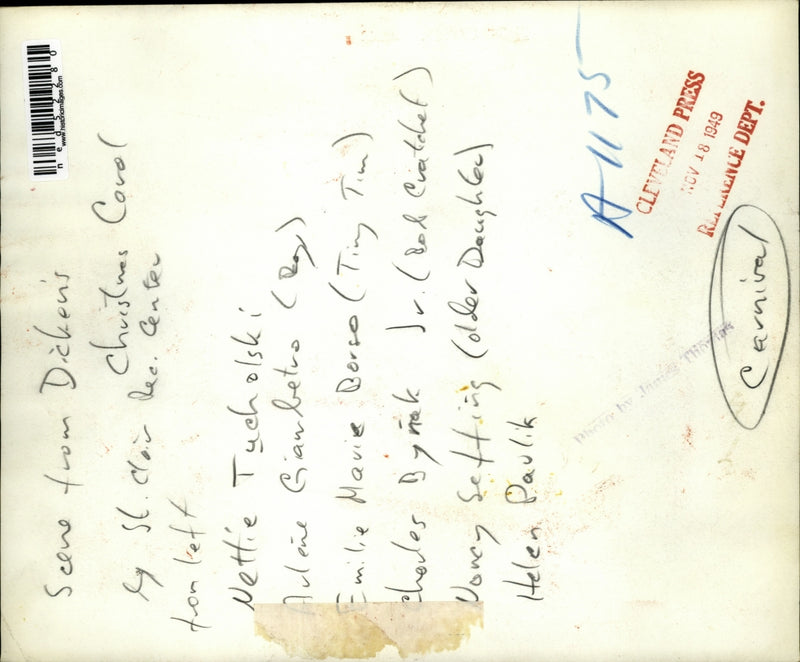 Scene from Dickens
Christmas Carol
by St. Clair Rec. Center
from left
Nettie Tucholski
Arlene Giambetro (Boy)
Emilie Marie Borso (Tiny Tim)
Charles Bynak Jr. (Bob Cratchet)
Nancy Setting (older Daughter)
Helen Pavlik
A-1175
CLEVELAND PRESS
NOV 18 1949
REFERENCE DEPT.
Photo by James
Carnival
www.historicimages.com
ned52280